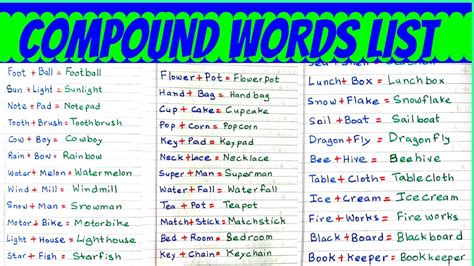 COMPOUND WORDS LIST
Foot + Ball = Football
Sun + Light = Sunlight
Note + Pad = Notepad
Tooth + Brush = Toothbrush
Cow + Boy = Cowboy
Rain + Bow = Rainbow
Water + Melon = Watermelon
Wind + Mill = Windmill
Snow + Man = Snowman
Motor + Bike = Motorbike
Light + House = Lighthouse
Star + Fish = Starfish
Flower + Pot = Flowerpot
Hand + Bag = Handbag
Cup + Cake = Cupcake
Pop + Corn = Popcorn
Key + Pad = Keypad
Neck + Lace = Necklace
Super + Man = Superman
Water + Fall = Waterfall
Tea + Pot = Teapot
Match + Stick = Matchstick
Bed + Room = Bedroom
Key + Chain = Keychain
Lunch + Box = Lunchbox
Snow + Flake = Snowflake
Sail + Boat = Sailboat
Dragon + Fly = Dragonfly
Bee + Hive = Beehive
Table + Cloth = Tablecloth
Ice + Cream = Icecream
Fire + Works = Fireworks
Black + Board = Blackboard
Book + Keeper = Bookkeeper